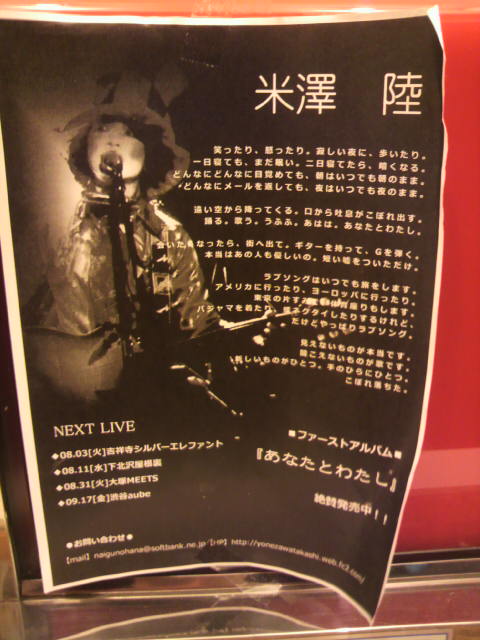 米澤 陸
笑ったり、怒ったり。寂しい夜に、歩いたり。
一日寝ても、まだ眠い。二日寝てたら、暗くなる。
どんなにどんなに目覚めても、朝はいつでも朝のまま。
どんなにメールを返しても、夜はいつでも夜のまま。
遠い空から降ってくる。口から吐息がこぼれ出す。
踊る。歌う。うふふ。あはは。あなたとわたし。
会いたくなったら、街へ出て。ギターを持って、Gを弾く。
本当はあの人も優しいの。短い嘘をついただけ。
ラブソングはいつでも旅をします。
アメリカに行ったり、ヨーロッパに行ったり。
東京の片すみで
りもします。
パジャマを着たり、ネクタイしたりするけれど、
だけどやっぱりラブソング。
見えないものが本当です。
聞こえないものが歌です。
美しいものがひとつ。手のひらにひとつ。
こぼれ落ちた。
NEXT LIVE
◆08.03[火]吉祥寺シルバーエレファント
◆08.11[水]下北沢屋根裏
◆08.31[火]大塚MEETS
◆09.17[金]渋谷aube
■ファーストアルバム■
『あなたとわたし』
絶賛発売中！！
●お問い合わせ●
【mail】naigunohana@softbank.ne.jp【HP】http://yonezawatakashi.web.fc2.com/